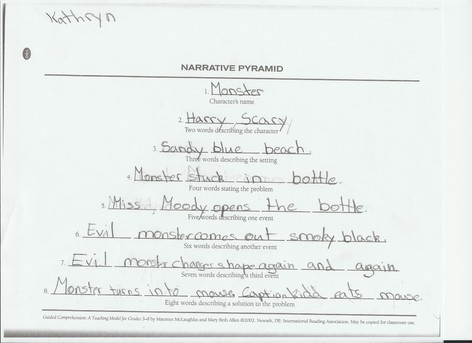 Kathryn
NARRATIVE PYRAMID
1. Monster
Character's name
2. Harry, Scary
Two words describing the character
3. Sandy blue beach.
Three words describing the setting
4. Monster stuck in bottle.
Four words stating the problem
5. Miss Moody opens the bottle.
Five words describing one event
6. Evil monster comes out smoky black.
Six words describing another event
7. Evil monster changes shape again and again
Seven words describing a third event
8. Monster turns into mouse. Caption kidd eats mouse.
Eight words describing a solution to the problem
Guided Comprehension: A Teaching Model for Grades 3–8 by Maureen McLaughlin and Mary Beth Allen ©2002. Newark, DE: International Reading Association. May be copied for classroom use.